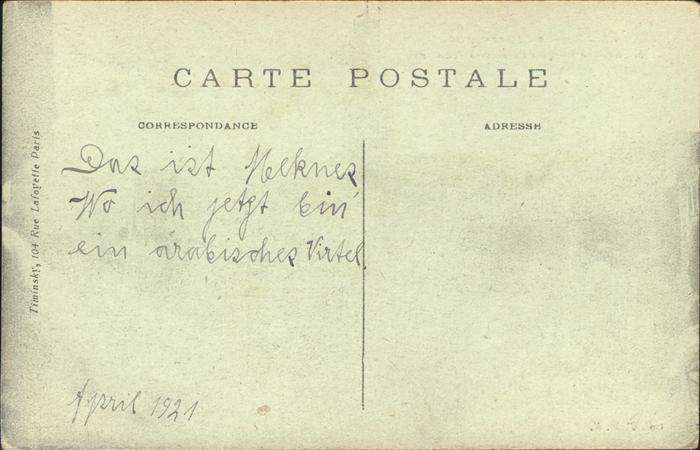 CARTE POSTALE
CORRESPONDANCE
ADRESSE
Das ist Meknes
Wo ich jetzt bin
ein arabisches Virtel.
April 1921
Timinsky, 104 Rue Lafayette Paris